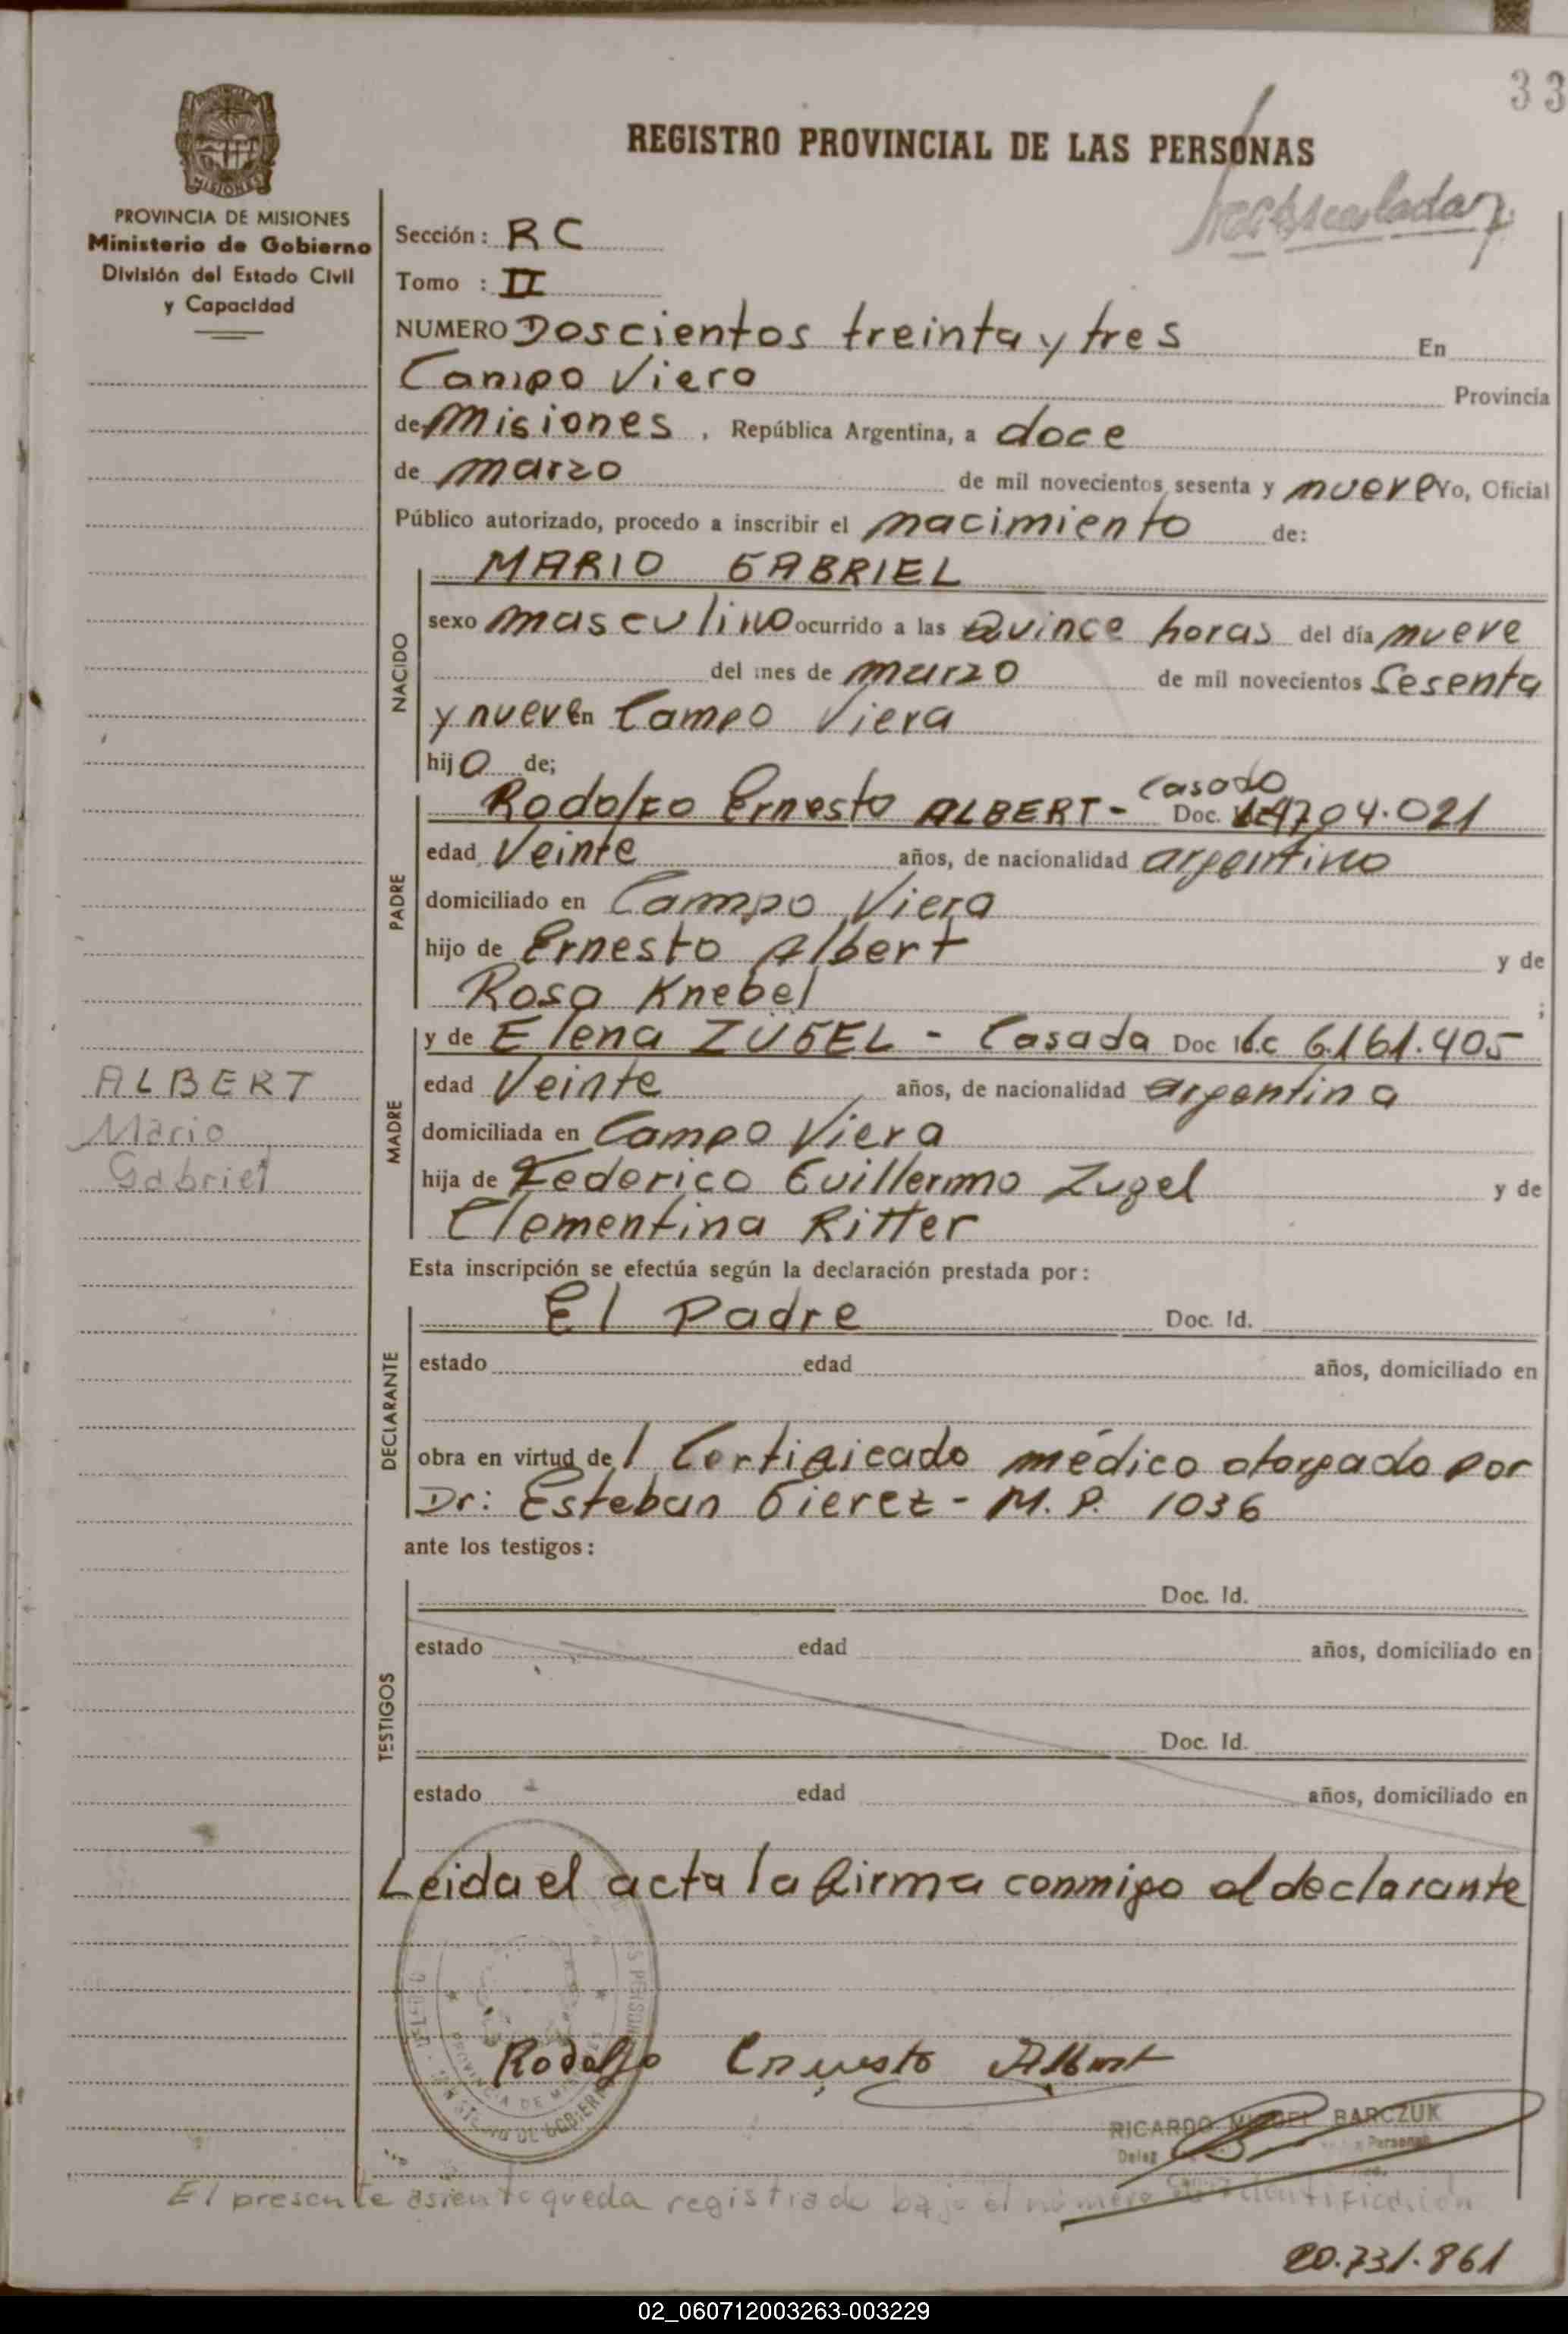 33
REGISTRO PROVINCIAL DE LAS PERSONAS
MISIONES
PROVINCIA DE MISIONES
Ministerio de Gobierno
División del Estado Civil
y Capacidad
Sección: RC
Tomo : II
NUMERO Doscientos treinta y tres En
Campo Viera Provincia
de Misiones, República Argentina, a doce
de marzo de mil novecientos sesenta y nueve Yo, Oficial
Público autorizado, procedo a inscribir el nacimiento de:
NACIDO
MARIO GABRIEL
sexo masculino ocurrido a las Quince horas del día nueve
del mes de marzo de mil novecientos Sesenta
y nueve en Campo Viera
hijo de;
PADRE
casado
Rodolfo Ernesto ALBERT - Doc. 704.021
edad Veinte años, de nacionalidad argentino
domiciliado en Campo Viera
hijo de Ernesto Albert y de
Rosa Knebel ;
MADRE
y de Elena ZUGEL - Casada Doc 6.161.405
edad Veinte años, de nacionalidad argentina
domiciliada en Campo Viera
hija de Federico Guillermo Zugel y de
Clementina Ritter
ALBERT
Mario
Gabriel
Esta inscripción se efectúa según la declaración prestada por:
DECLARANTE
El Padre Doc. Id.
estado edad años, domiciliado en
obra en virtud de 1 Certificado médico otorgado por
Dr: Esteban Gierez - M. P. 1036
ante los testigos:
TESTIGOS
Doc. Id.
estado edad años, domiciliado en
Doc. Id.
estado edad años, domiciliado en
Leida el acta la firma conmigo el declarante
Rodolfo Ernesto Albert
RICARDO MIGUEL BARCZUK
El presente asiento queda registrado bajo el número de identificación
20.731.861
02_060712003263-003229